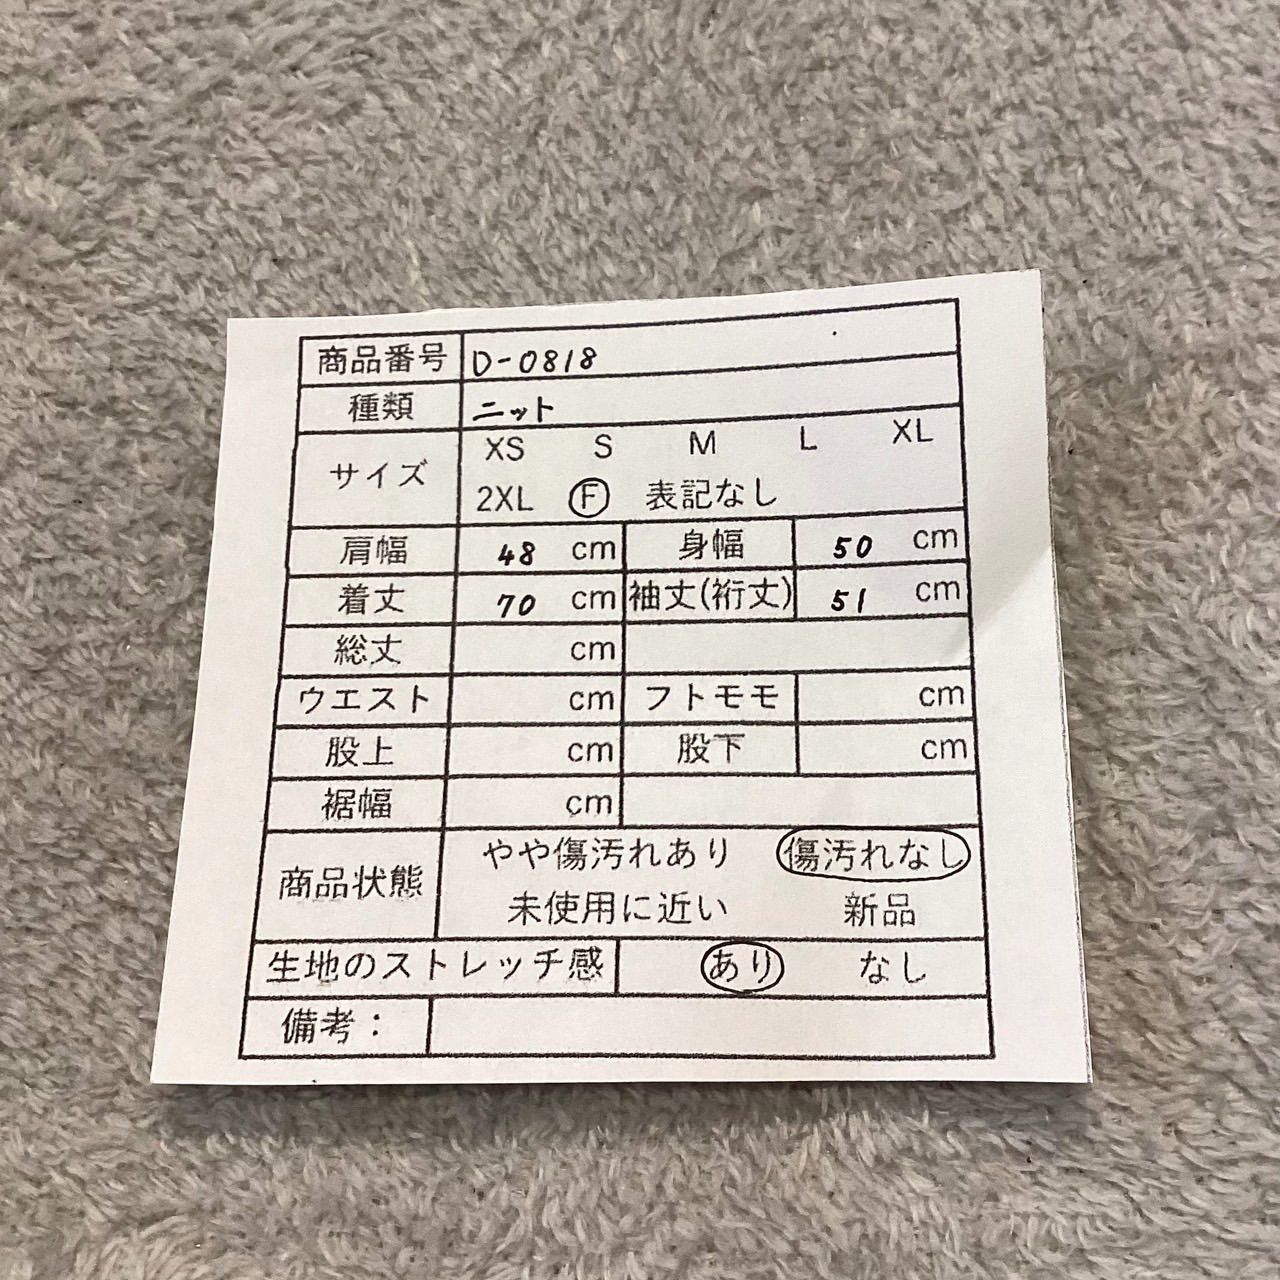 商品番号 D-0818
種類 ニット
サイズ XS S M L XL
2XL F 表記なし
肩幅 48 cm 身幅 50 cm
着丈 70 cm 袖丈(裄丈) 51 cm
総丈 cm
ウエスト cm フトモモ cm
股上 cm 股下 cm
裾幅 cm
商品状態 やや傷汚れあり 傷汚れなし
未使用に近い 新品
生地のストレッチ感 あり なし
備考：